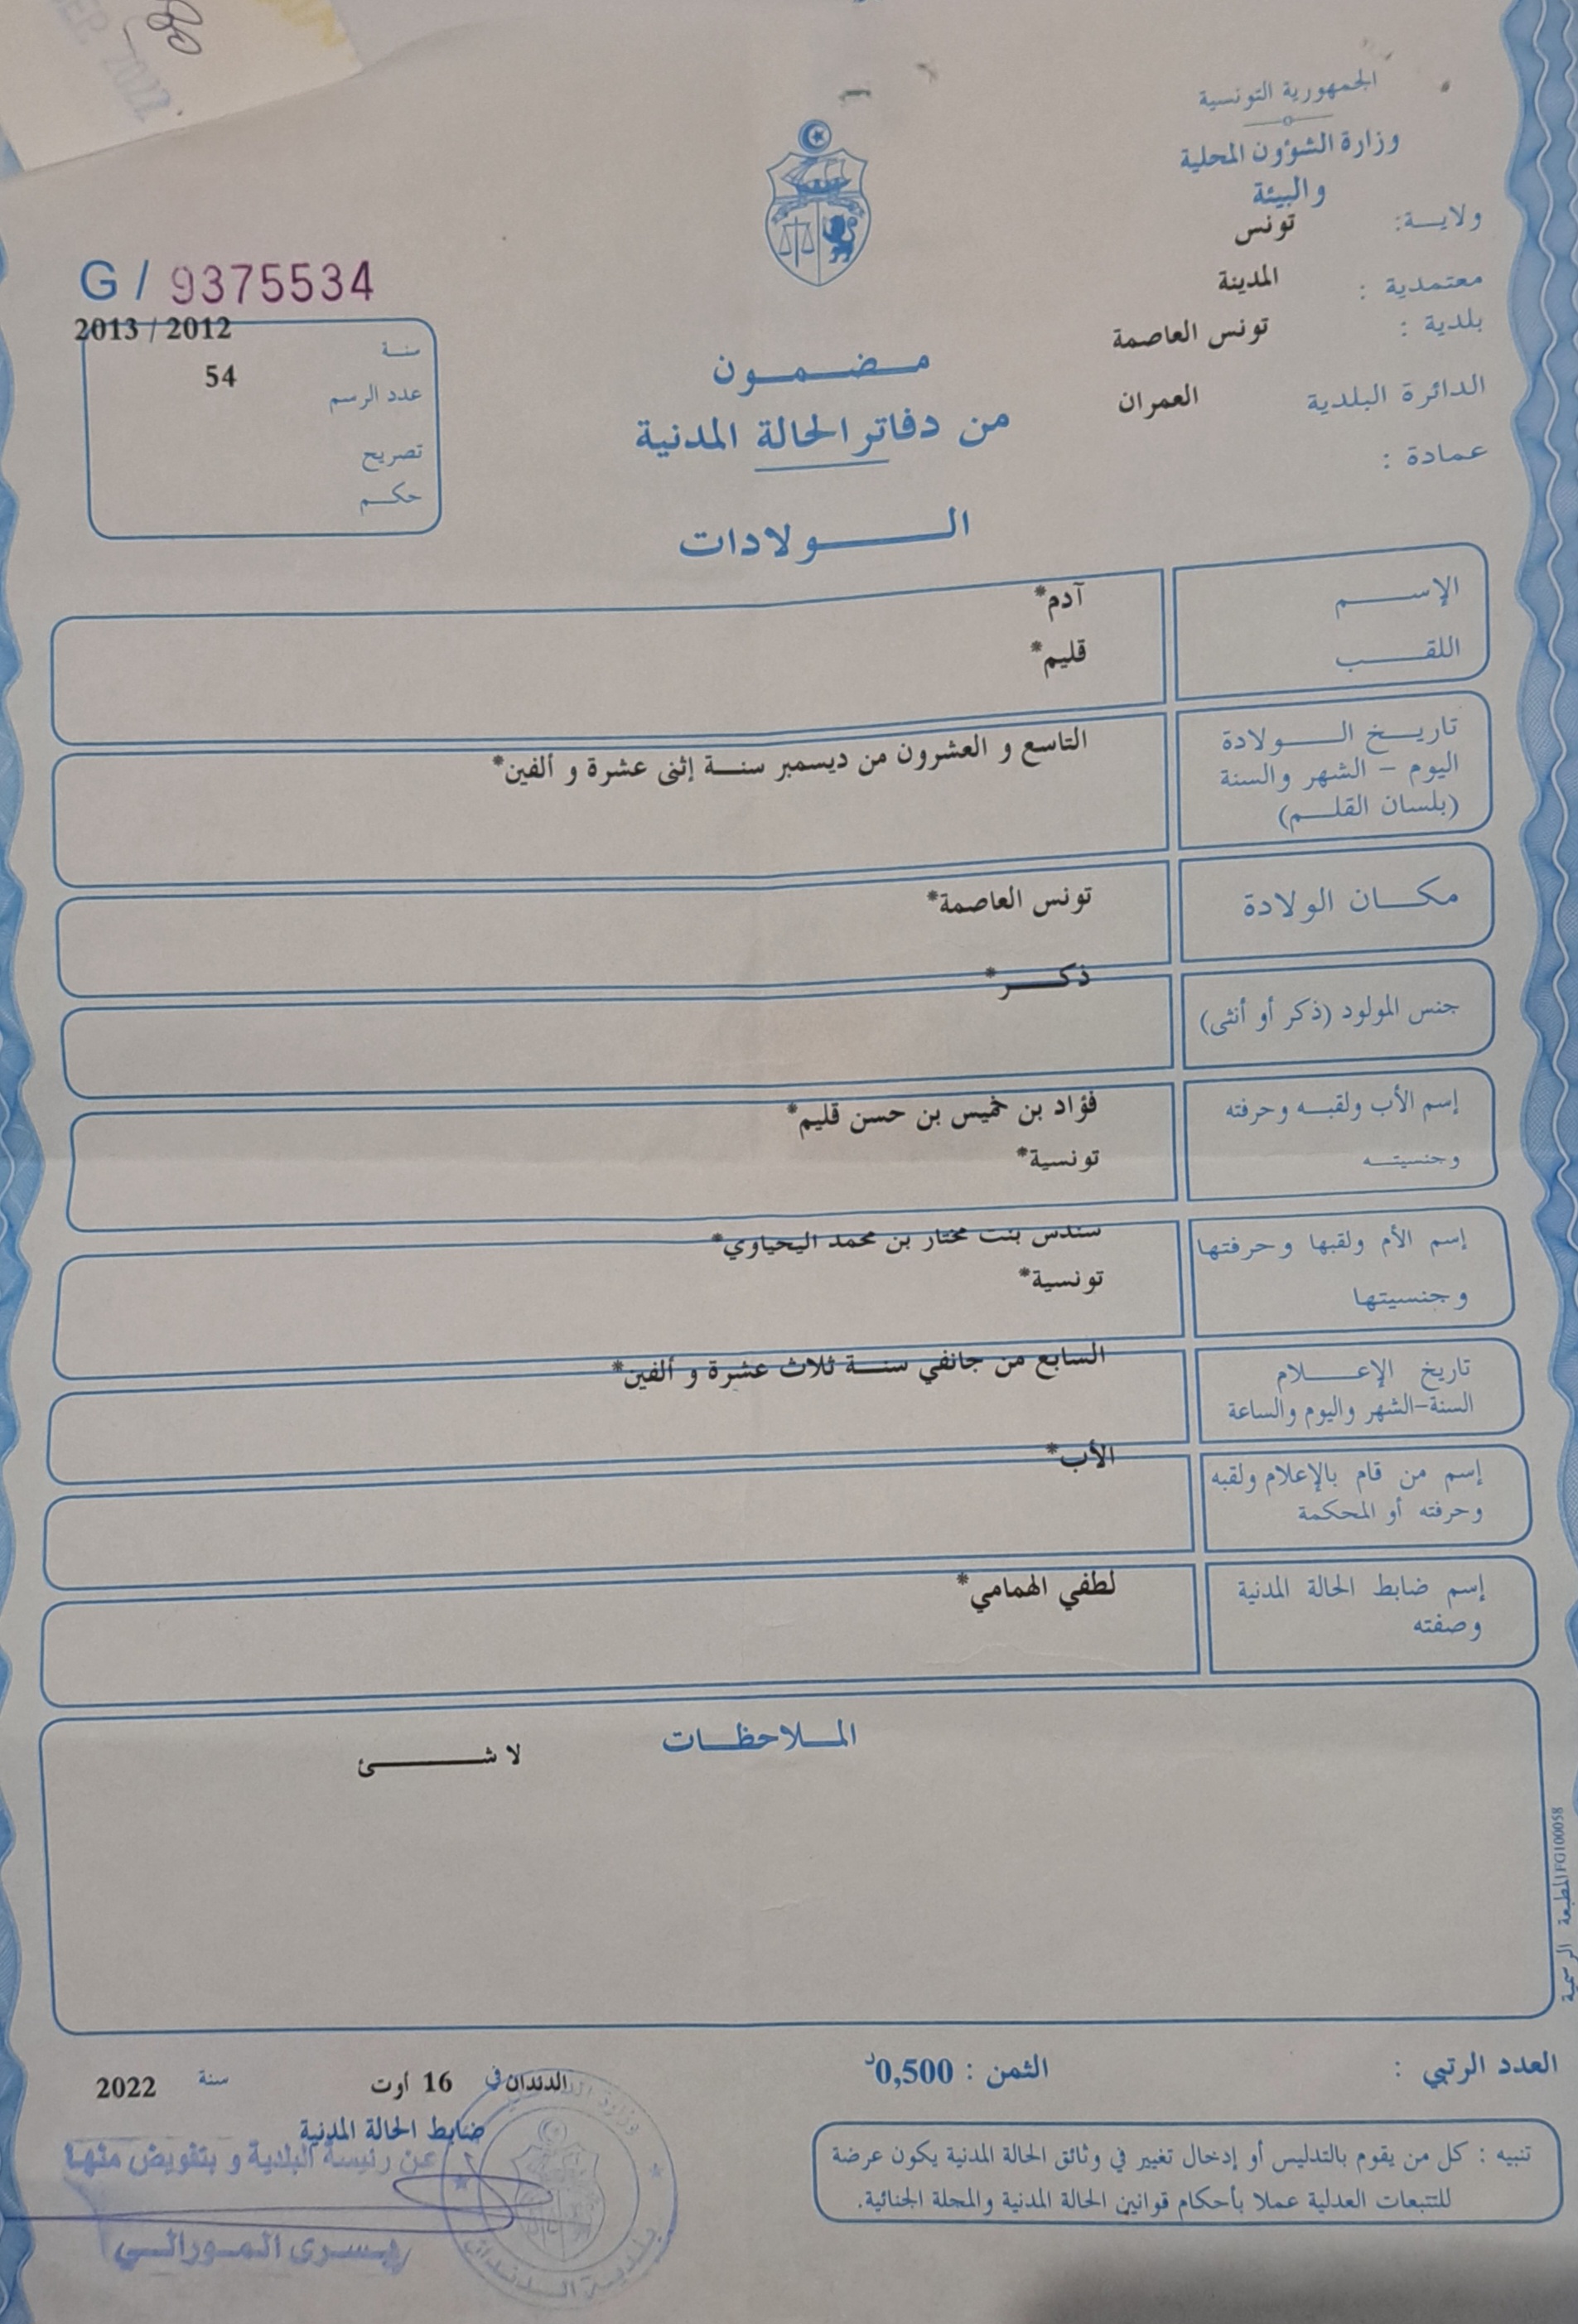 الجمهورية التونسية
وزارة الشؤون المحلية
والبيئة
ولايـــة: تونس
معتمدية : المدينة
بلدية : تونس العاصمة
الدائرة البلدية العمران
عمادة :
G / 9375534
2013 / 2012
سنـة
54
عدد الرسم
تصريح
حكـــم
مـــضـــمـــون
من دفاتر الحالة المدنية
الـــــــولادات
الإســــــم آدم*
اللقــــــب قليم*
تاريــخ الـــــولادة التاسع و العشرون من ديسمبر سنـــة إثنى عشرة و ألفين*
اليوم – الشهر والسنة
(بلسان القلــم)
مكـــان الولادة تونس العاصمة*
جنس المولود (ذكر أو أنثى) ذكــــر*
إسم الأب ولقبـــه وحرفته فؤاد بن خميس بن حسن قليم*
وجنسيتـــه تونسية*
إسم الأم ولقبها وحرفتها سندس بنت مختار بن محمد اليحياوي*
وجنسيتها تونسية*
تاريخ الإعـــــلام السابع من جانفي سنـــة ثلاث عشرة و ألفين*
السنة-الشهر واليوم والساعة
إسم من قام بالإعلام ولقبه الأب*
وحرفته أو المحكمة
إسم ضابط الحالة المدنية لطفي الهمامي*
وصفته
المـــلاحظـــات
لا شـــــــئ
المطبعة الرسمية FG100058
العدد الرتبي :
الثمن : 0,500د
الدندان في 16 أوت سنة 2022
ضابط الحالة المدنية
عن رئيسة البلدية و بتفويض منها
يسرى المورالي
بلدية الدندان
تنبيه : كل من يقوم بالتدليس أو إدخال تغيير في وثائق الحالة المدنية يكون عرضة
للتتبعات العدلية عملا بأحكام قوانين الحالة المدنية والمجلة الجنائية.